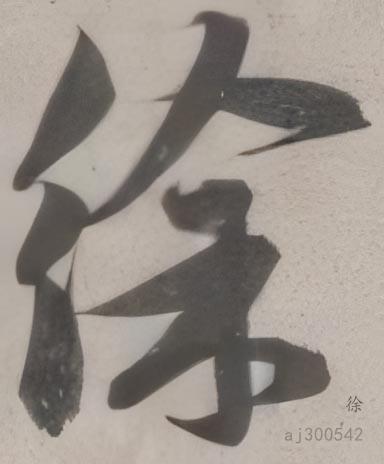 徐
徐
aj300542